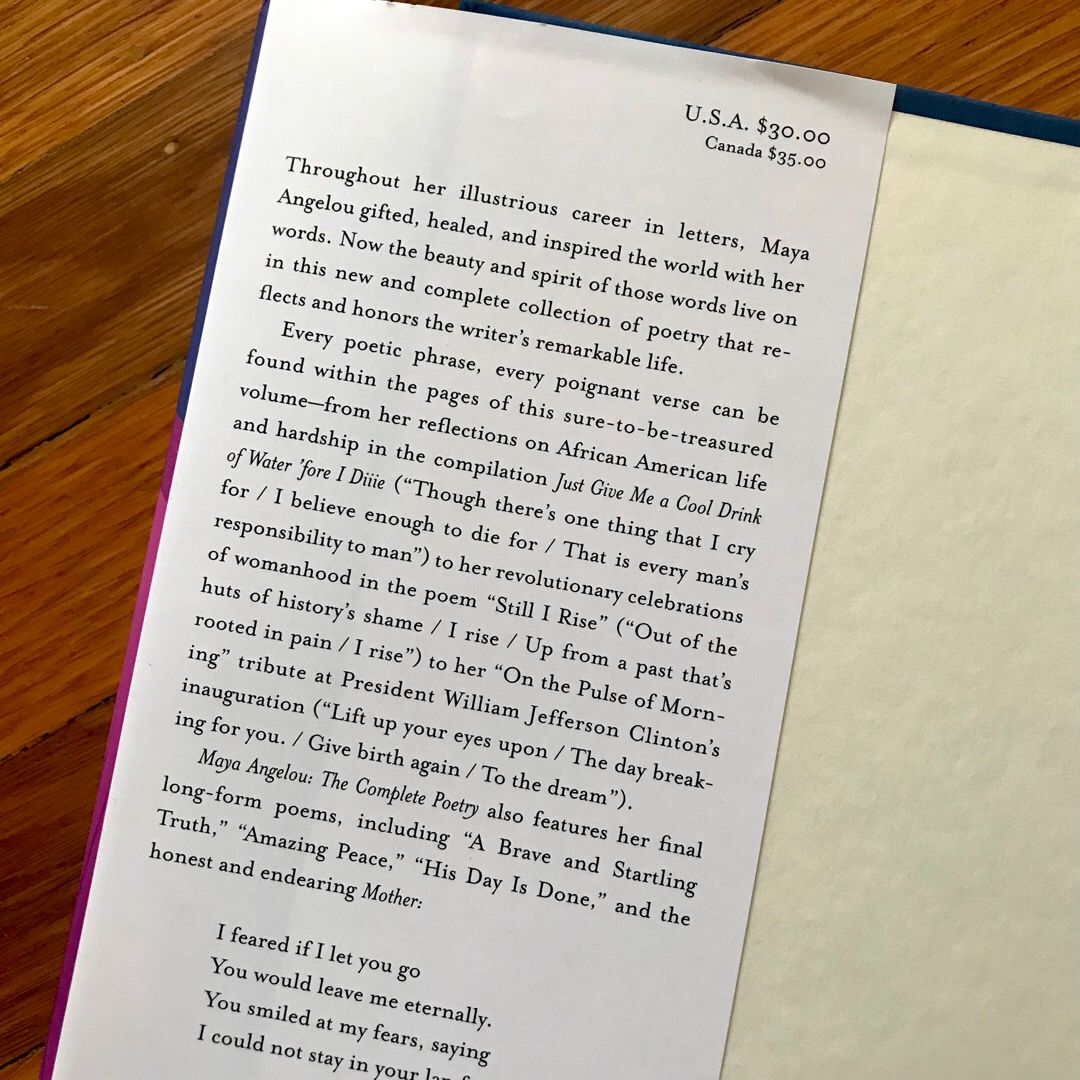 U.S.A. $30.00
Canada $35.00
Throughout her illustrious career in letters, Maya
Angelou gifted, healed, and inspired the world with her
words. Now the beauty and spirit of those words live on
in this new and complete collection of poetry that re-
flects and honors the writer’s remarkable life.
Every poetic phrase, every poignant verse can be
found within the pages of this sure-to-be-treasured
volume—from her reflections on African American life
and hardship in the compilation Just Give Me a Cool Drink
of Water ’fore I Diiie (“Though there’s one thing that I cry
for / I believe enough to die for / That is every man’s
responsibility to man”) to her revolutionary celebrations
of womanhood in the poem “Still I Rise” (“Out of the
huts of history’s shame / I rise / Up from a past that’s
rooted in pain / I rise”) to her “On the Pulse of Morn-
ing” tribute at President William Jefferson Clinton’s
inauguration (“Lift up your eyes upon / The day break-
ing for you. / Give birth again / To the dream”).
Maya Angelou: The Complete Poetry also features her final
long-form poems, including “A Brave and Startling
Truth,” “Amazing Peace,” “His Day Is Done,” and the
honest and endearing Mother:
I feared if I let you go
You would leave me eternally.
You smiled at my fears, saying
I could not stay in your